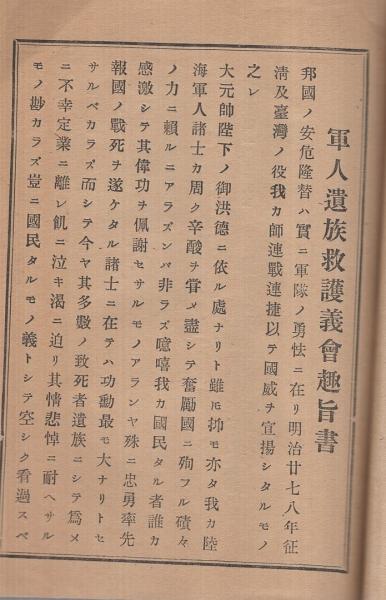 軍人遺族救護義會趣旨書
邦國ノ安危隆替ハ實ニ軍隊ノ勇怯ニ在リ明治廿七八年征
淸及臺灣ノ役我カ師連戰連捷以テ國威ヲ宣揚シタルモノ
之レ
大元帥陛下ノ御洪德ニ依ル處ナリト雖モ抑モ亦タ我カ陸
海軍人諸士カ周ク辛酸ヲ甞メ盡シテ奮勵國ニ殉フル磧々
ノ力ニ賴ルニアラズンバ非ラズ噫嘻我カ國民タル者誰カ
感激シテ其偉功ヲ佩謝セサルモノアランヤ殊ニ忠勇率先
報國ノ戰死ヲ遂ケタル諸士ニ在テハ功勳最モ大ナリトセ
サルベカラズ而シテ今ヤ其多數ノ致死者遺族ニシテ爲メ
ニ不幸定業ニ離レ飢ニ泣キ渴ニ迫リ其情悲悼ニ耐ヘサル
モノ尠カラズ豈ニ國民タルモノ義トシテ空シク看過スベ